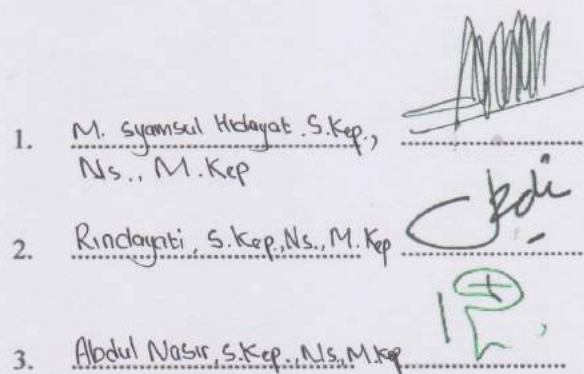 1. M. Syamsul Hidayat. S.Kep.,
Ns., M.Kep
2. Rindayati, S.Kep.,Ns., M.Kep
3. Abdul Nasir, S.Kep., Ns., M.Kep